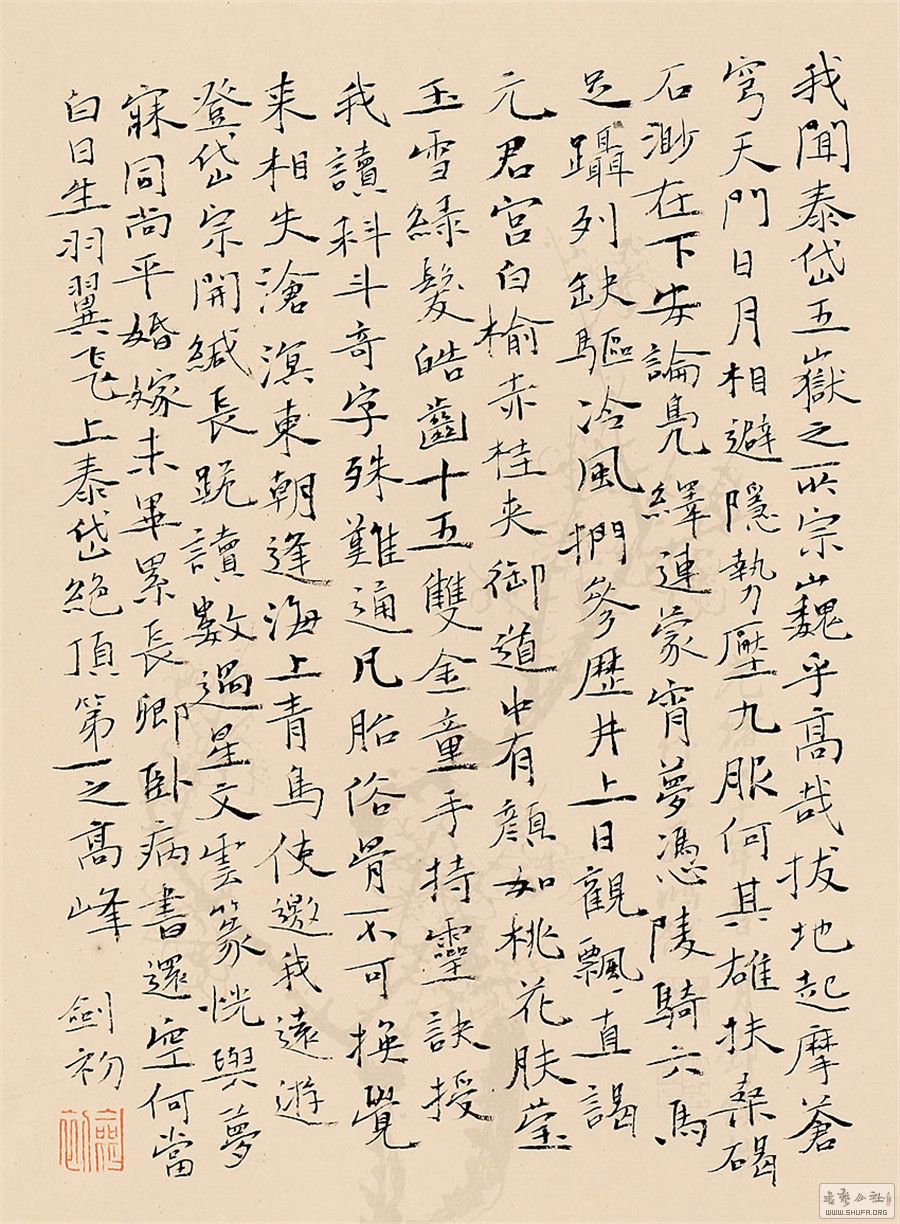 我聞泰岱五嶽之所宗巍乎高哉拔地起摩蒼
穹天門日月相避隱勢壓九服何其雄扶桑碣
石渺在下安論鳧繹連蒙宵夢憑陵騎六馬
足躡列缺驅冷風捫參歷井上日觀飄飄直謁
元君宮白榆赤桂夾御道中有顏如桃花肤瑩
玉雪綠髮皓齒十五雙金童手持靈訣授
我讀科斗奇字殊難通凡胎俗骨不可換覺
来相失滄溟東朝逢海上青鳥使邀我遠遊
登岱宗開緘長跪讀數過星文雲篆恍與夢
寐同尚平婚嫁未畢累長卿臥病書還空何當
白日生羽翼飞上泰岱絕頂第一之高峰
劍初
書藝公社
WWW.SHUFA.ORG